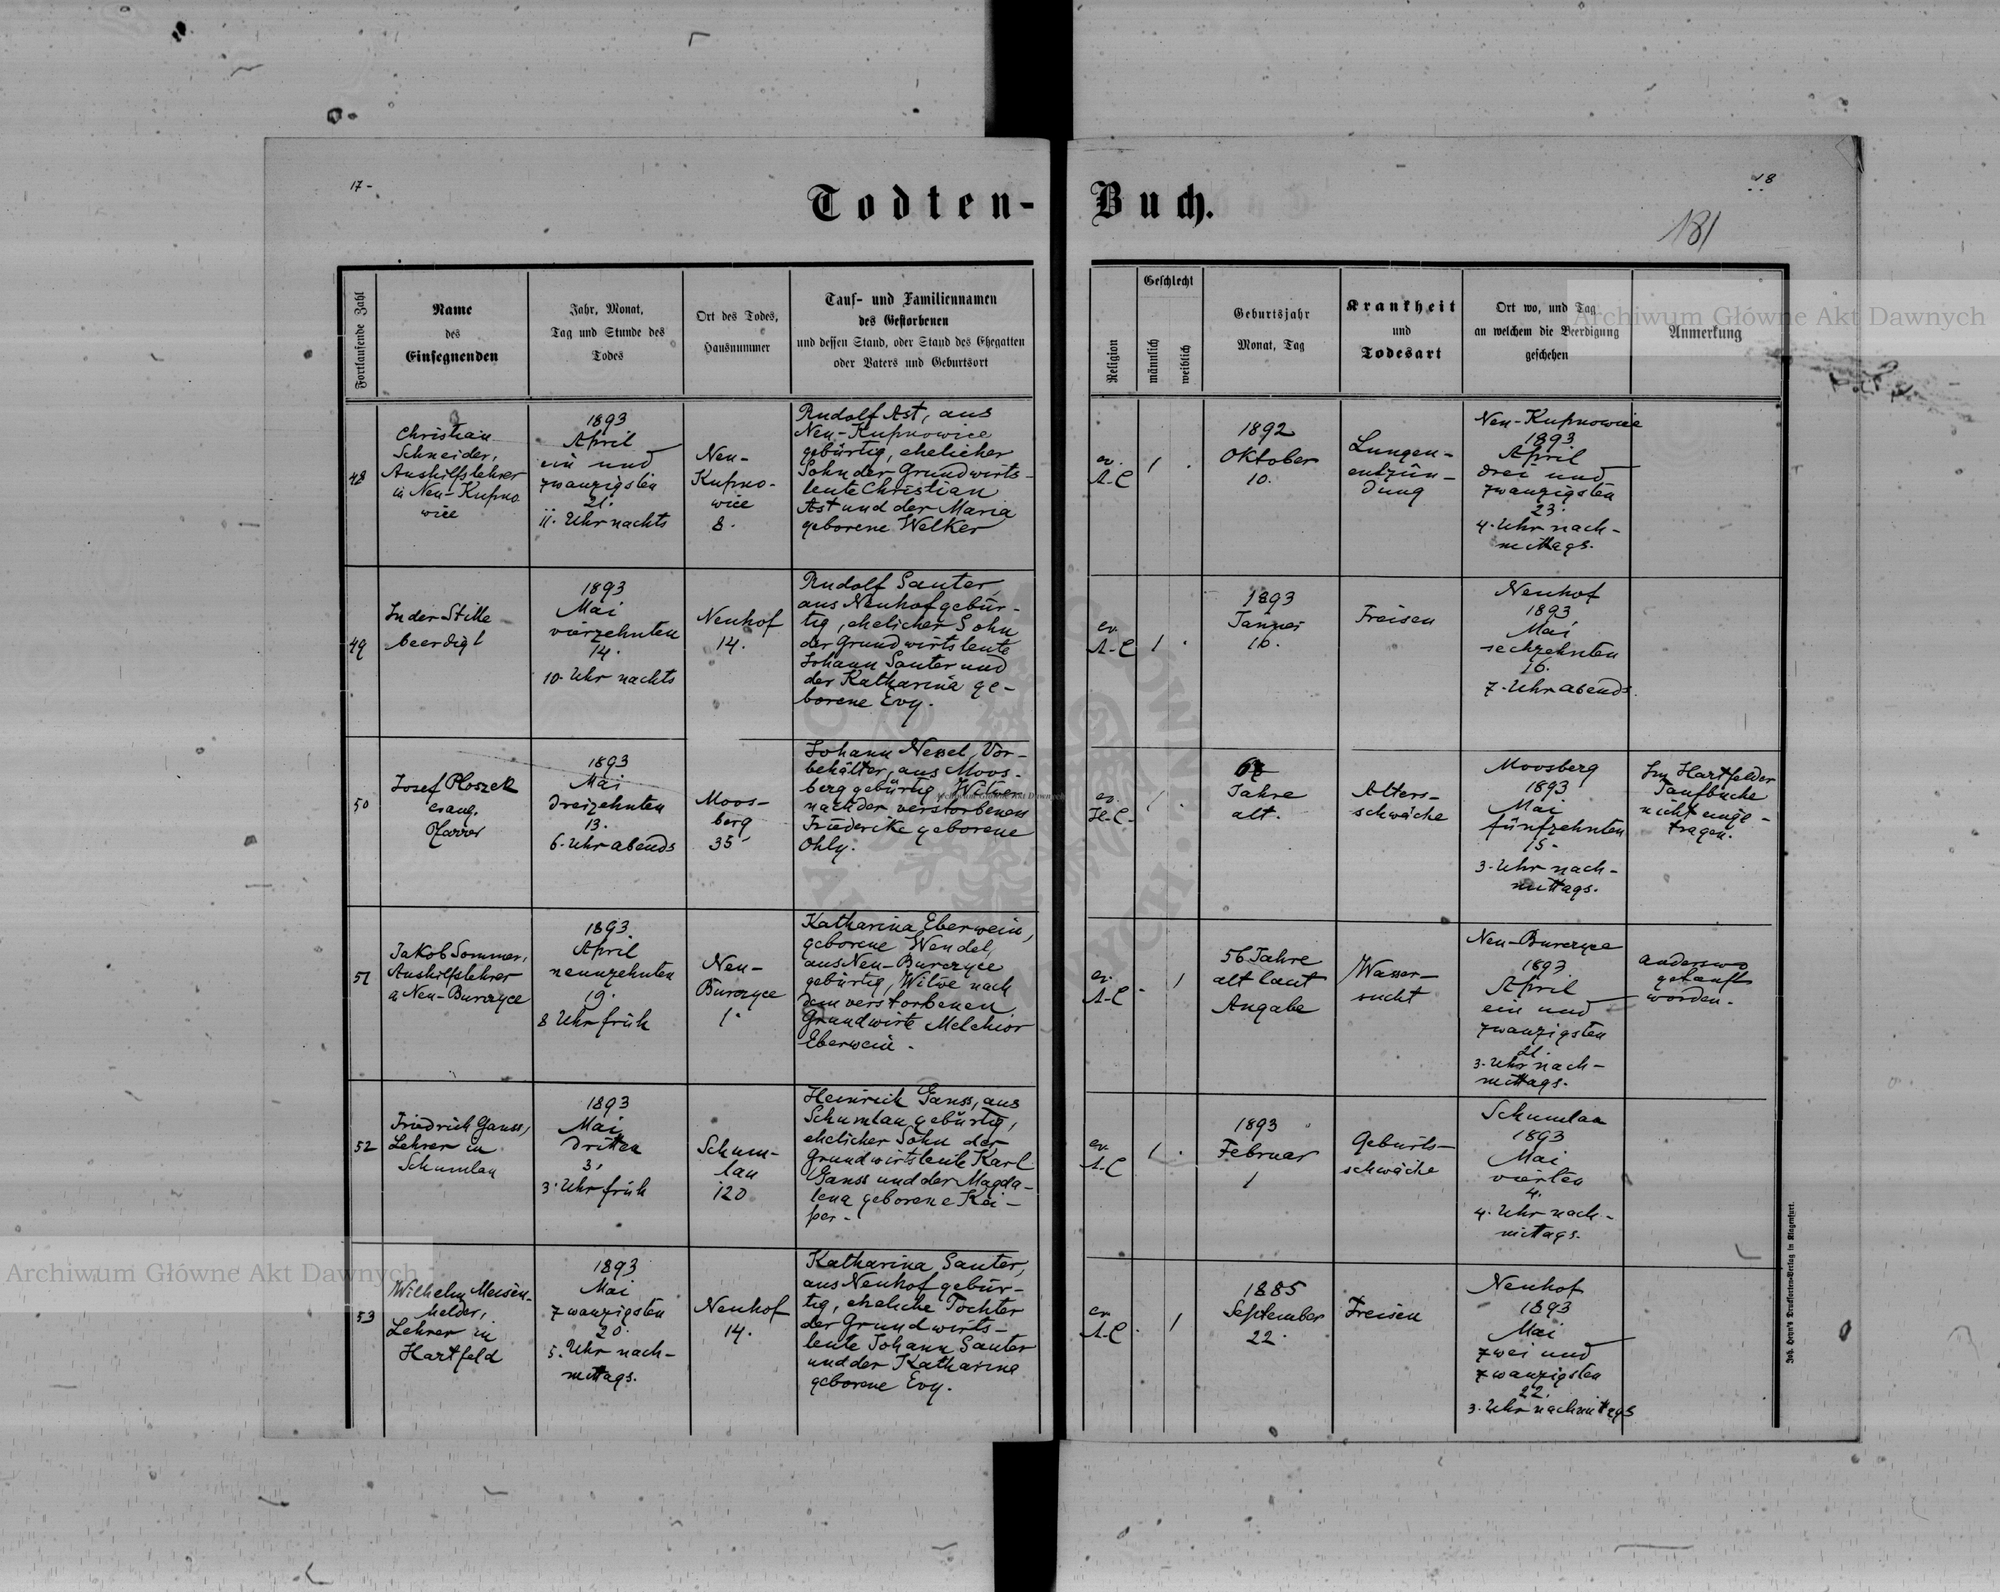 17-
18
Todten-Buch.
181
Fortlaufende Zahl
Name
des
Einsegnenden
Jahr, Monat,
Tag und Stunde des
Todes
Ort des Todes,
Hausnummer
Tauf- und Familiennamen
des Gestorbenen
und dessen Stand, oder Stand des Ehegatten
oder Vaters und Geburtsort
Religion
Geschlecht
männlich
weiblich
Geburtsjahr
Monat, Tag
Krankheit
und
Todesart
Ort wo, und Tag
an welchem die Beerdigung
geschehen
Anmerkung
48
Christian
Schneider,
Aushilfslehrer
in Neu-Kupno
wice
1893
April
ein und
zwanzigsten
21.
11. Uhr nachts
Neu-
Kupno-
wice
8.
Rudolf Ast, aus
Neu-Kupnowice
gebürtig, ehelicher
Sohn der Grundwirts-
leute Christian
Ast und der Maria
geborene Welker
ev.
A-C
1
.
1892
Oktober
10.
Lungen-
entzün-
dung
Neu-Kupnowice
1893
April
drei und
zwanzigsten
23.
4. Uhr nach-
mittags.
49
In der Stille
beerdigt
1893
Mai
vierzehnten
14.
10. Uhr nachts
Neuhof
14.
Rudolf Sauter,
aus Neuhof gebür-
tig, ehelicher Sohn
der Grundwirtsleute
Johann Sauter und
der Katharina ge-
borene Evy.
ev.
A-C
1
.
1893
Januer
16.
Freisen
Neuhof
1893
Mai
sechzehnten
16.
7. Uhr abends.
50
Josef Ploszek
evang.
Pfarrer
1893
Mai
dreizehnten
13.
6. Uhr abends
Moos-
berg
35
Johann Nessel, Vor-
behälter, aus Moos-
berg gebürtig, Witwer
nach der verstorbenen
Friederike geborene
Ohly.
ev.
H-C-
1
.
Jahre
alt.
Alters-
schwäche
Moosberg
1893
Mai
fünfzehnten
15.
3. Uhr nach-
mittags.
Im Hartfelder
Taufbuche
nicht einge-
tragen.
51
Jakob Sommer,
Aushilfslehrer
a Neu-Burczyce
1893
April
neunzehnten
19.
8 Uhr früh
Neu-
Burczyce
1.
Katharina Eberwein,
geborene Wendel,
aus Neu-Burczyce
gebürtig, Witwe nach
dem verstorbenen
Grundwirte Melchior
Eberwein.
ev.
A-C
.
1
56 Jahre
alt laut
Angabe
Wasser-
sucht
Neu-Burczyce
1893
April
ein und
zwanzigsten
21.
3. Uhr nach-
mittags.
anderswo
getauft
worden.
52
Friedrich Ganss,
Lehrer in
Schumlau
1893
Mai
dritten
3.
3. Uhr früh
Schum-
lau
120
Heinrich Ganss, aus
Schumlau gebürtig,
ehelicher Sohn der
Grundwirtsleute Karl
Ganss und der Magda-
lena geborene Kei-
per.
ev.
A-C
1
.
1893
Februar
1
Geburts-
schwäche
Schumlau
1893
Mai
vierten
4.
4. Uhr nach-
mittags.
53
Wilhelm Meisen-
helder,
Lehrer in
Hartfeld
1893
Mai
zwanzigsten
20.
5. Uhr nach-
mittags.
Neuhof
14.
Katharina Sauter,
aus Neuhof gebür-
tig, eheliche Tochter
der Grundwirts-
leute Johann Sauter
und der Katharina
geborene Evy.
ev.
A-C
.
1
1885
September
22.
Freisen
Neuhof
1893
Mai
zwei und
zwanzigsten
22.
3. Uhr nachmittags
Joh. Heyn's Drucksorten-Verlag in Klagenfurt.
Archiwum Główne Akt Dawnych
Archiwum Główne Akt Dawnych
Archiwum Główne Akt Dawnych